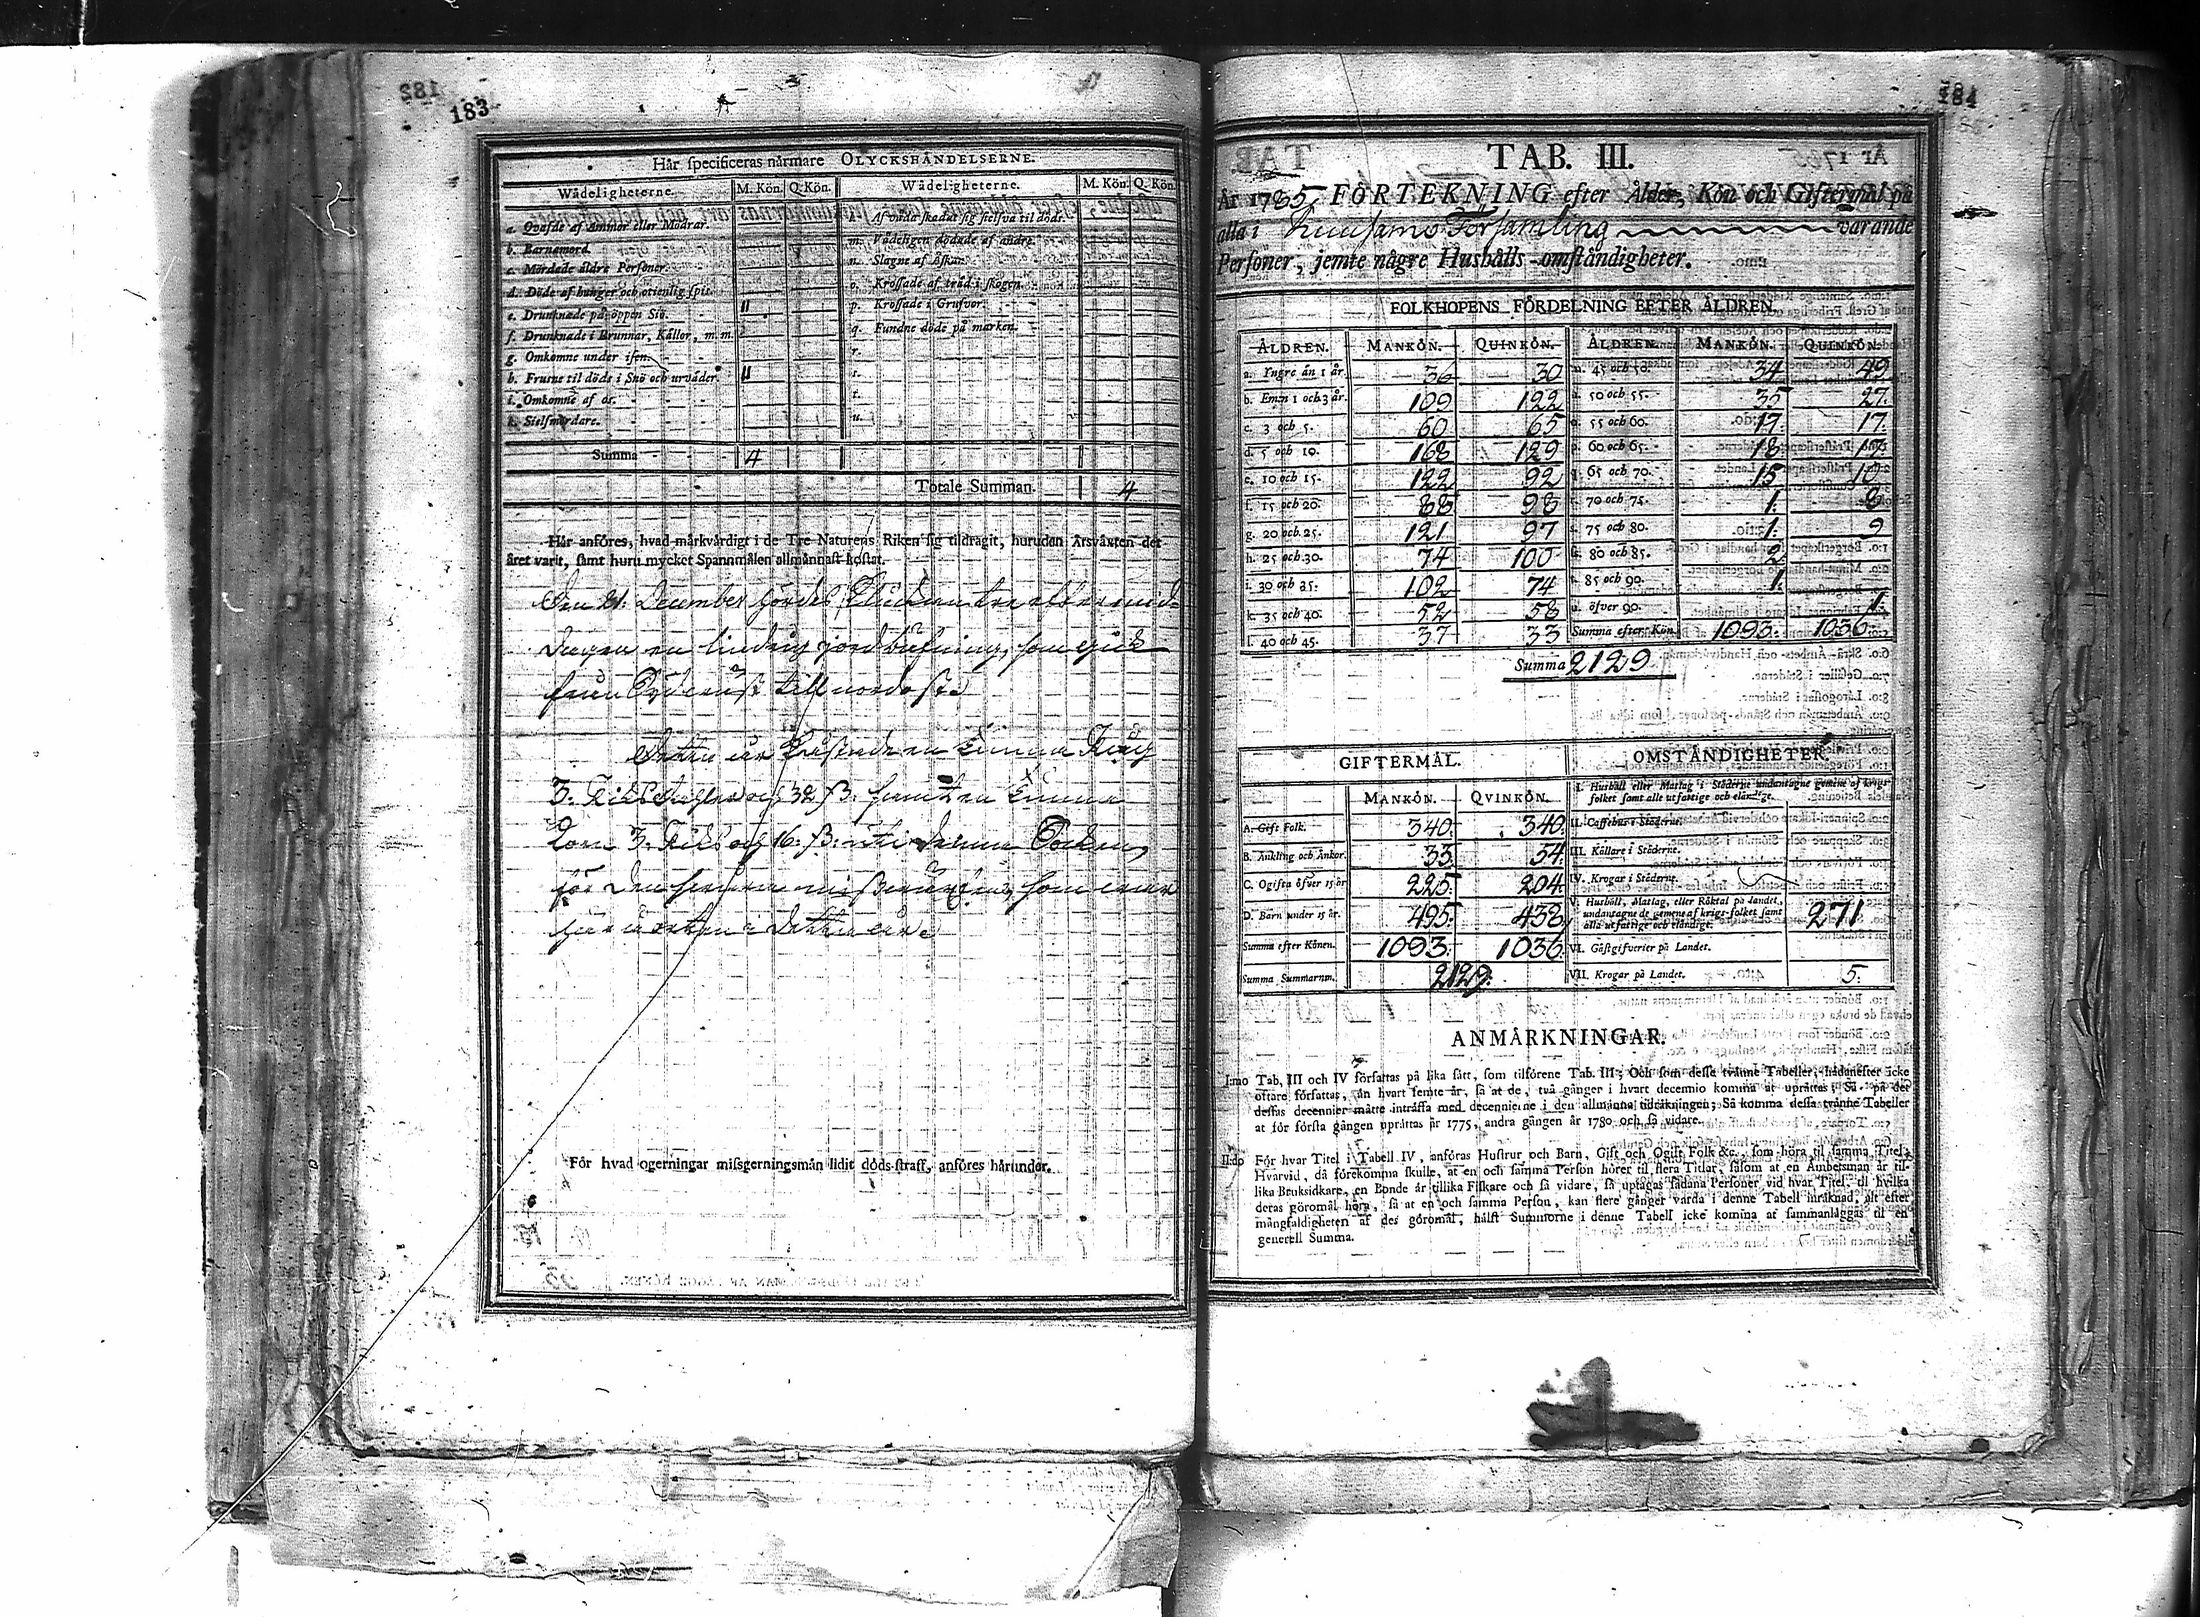 183
Här specificeras närmare OLYCKSHÄNDELSERNE.
Wådeligheterne. M. Kön. Q. Kön. Wådeligheterne. M. Kön. Q. Kön.
a. Qvafde af Ammor eller Modrar.
b. Barnamord.
c. Mördade äldre Personer.
d. Döde af hunger och otienlig spis.
e. Drunknade på öppen Siö. "
f. Drunknade i Brunnar, Källor, m. m.
g. Omkomne under isen.
h. Frusne til döds i Snö och urväder. "
i. Omkomne af os.
k. Sielfmördare.
l. Af våda skadat sig sielfva til döds.
m. Vådeligen dödade af andra.
n. Slagne af Åskan.
o. Krossade af träd i skogen.
p. Krossade i Grufvor.
q. Fundne döde på marken.
r.
s.
t.
u.
Summa 4
Totale Summan. 4
Här anföres, hvad märkvärdigt i de Tre Naturens Riken sig tildragit, hurudan Årsväxten det
året varit, samt huru mycket Spannmålen allmännast kostat.
Den 21. December hördes Klockan tre eftermid-
dagen en lindrig jordbäfning, som gick
från Sydväst till nordost
Detta år kostade en tunna Råg
3. Riksdaler och 32 ß. samt en tunna
Korn 3. Riksd och 16. ß. uti denna Socken,
för den svåra missväxten, som
här detta år
För hvad ogerningar missgerningsmän lidit döds-straff, anföres härunder.
184
TAB. III.
År 1785 FÖRTEKNING efter Ålder, Kön och Giftermål på
alla i Kuusamo Församling varande
Personer, jemte någre Hushålls-omständigheter.
FOLKHOPENS FÖRDELNING EFTER ÅLDREN.
ÅLDREN. MANKÖN. QUINKÖN. ÅLDREN. MANKÖN. QUINKÖN.
a. Yngre än 1 år. 36 30 m. 45 och 50. 34 49
b. Emn 1 och 3 år. 109 122 n. 50 och 55. 35 27.
c. 3 och 5. 60 65 o. 55 och 60. 17. 17.
d. 5 och 10. 168 129 p. 60 och 65. 18 17
e. 10 och 15. 122 92 q. 65 och 70. 15 10
f. 15 och 20. 88 98 r. 70 och 75. 1. 8
g. 20 och 25. 121 97 s. 75 och 80. 1. 9
h. 25 och 30. 74 100 80 och 85. 2
i. 30 och 35. 102 74 85 och 90. 1.
k. 35 och 40. 52 58 u. öfver 90. 1.
l. 40 och 45. 37 33 Summa efter Kön. 1093. 1036.
Summa 2129
GIFTERMÅL. OMSTÄNDIGHETER.
MANKÖN. QVINKÖN.
A. Gift Folk. 340. 340.
B. Änkling och Änkor. 33 54.
C. Ogifta öfver 15 år 225. 204.
D. Barn under 15 år. 495. 438.
Summa efter Könen. 1093. 1036
Summa Summarum. 2129.
I. Hushåll eller Matlag i Städerne undantagne gemene af krigs-
folket samt alle utfattige och eländige.
II. Caffehus i Städerne.
III. Källare i Städerne.
IV. Krogar i Städerne.
V. Hushåll, Matlag, eller Röktal på landet,
undantagne de gemene af krigs-folket samt
alla utfattige och eländige. 271
VI. Gästgifverier på Landet.
VII. Krogar på Landet. 5.
ANMÄRKNINGAR.
I:mo Tab. III och IV författas på lika sätt, som tilförene Tab. III; Och som desse tvänne Tabeller, hädanefter icke
oftare författas, än hvart femte år, så at de, två gånger i hvart decennio komma at uprättas; Så på det
dessas decennier måtte inträffa med decennierne i den allmänna tideräkningen; Så komma dessa tvänne Tabeller
at för första gången uprättas år 1775, andra gången år 1780 och så vidare.
II:do För hvar Titel i Tabell IV, anföras Hustrur och Barn, Gift och Ogift Folk &c., som höra til samma Titel;
Hvarvid, då förekomma skulle, at en och samma Person hörer til flera Titlar, såsom at en Ämbetsman är til-
lika Bruksidkare, en Bonde är tillika Fiskare och så vidare, så uptagas sådana Personer vid hvar Titel, til hvilka
deras göromål höra, så at en och samma Person, kan flere gånger varda i denne Tabell inräknad, alt efter
mångfaldigheten af des göromål, hälst Summorne i denne Tabell icke komma at sammanläggas til en
generell Summa.